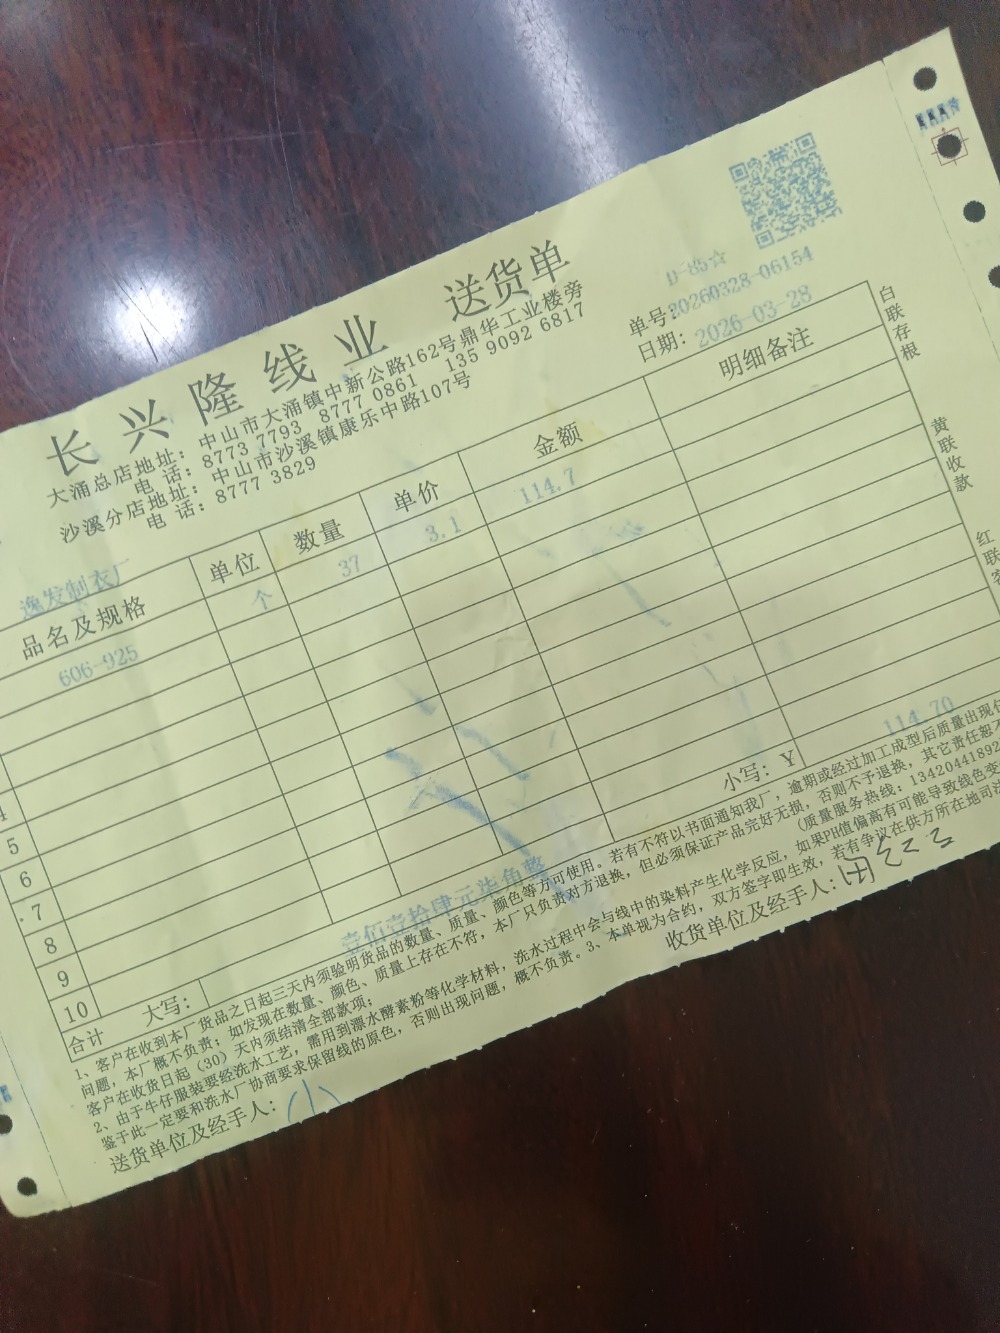 长兴隆线业 送货单
大涌总店地址：中山市大涌镇中新公路162号鼎华工业楼旁
电 话：8773 7793 8777 0861 135 9092 6817
沙溪分店地址：中山市沙溪镇康乐中路107号
电 话：8777 3829
D-85☆
单号:20260328-06154
日期：2026-03-28
逸发制衣厂
品名及规格 单位 数量 单价 金额 明细备注
606-925 个 37 3.1 114.7
4
5
6
7
8
9
10
合计 大写：壹佰壹拾肆元柒角整 小写：￥ 114.70
1、客户在收到本厂货品之日起三天内须验明货品的数量、质量、颜色等方可使用。若有不符以书面通知我厂，逾期或经过加工成型后质量出现任
问题，本厂概不负责；如发现在数量、颜色、质量上存在不符，本厂只负责对方退换，但必须保证产品完好无损，否则不予退换，其它责任恕不
客户在收货日起（30）天内须结清全部款项； （质量服务热线：13420441892
2、由于牛仔服装要经洗水工艺，需用到漂水酵素粉等化学材料，洗水过程中会与线中的染料产生化学反应，如果PH值偏离有可能导致线色变
鉴于此一定要和洗水厂协商要求保留线的原色，否则出现问题，概不负责。3、本单视为合约，双方签字即生效，若有争议在供方所在地司法
送货单位及经手人：小 收货单位及经手人：田红云
白联存根
黄联收款
红联客